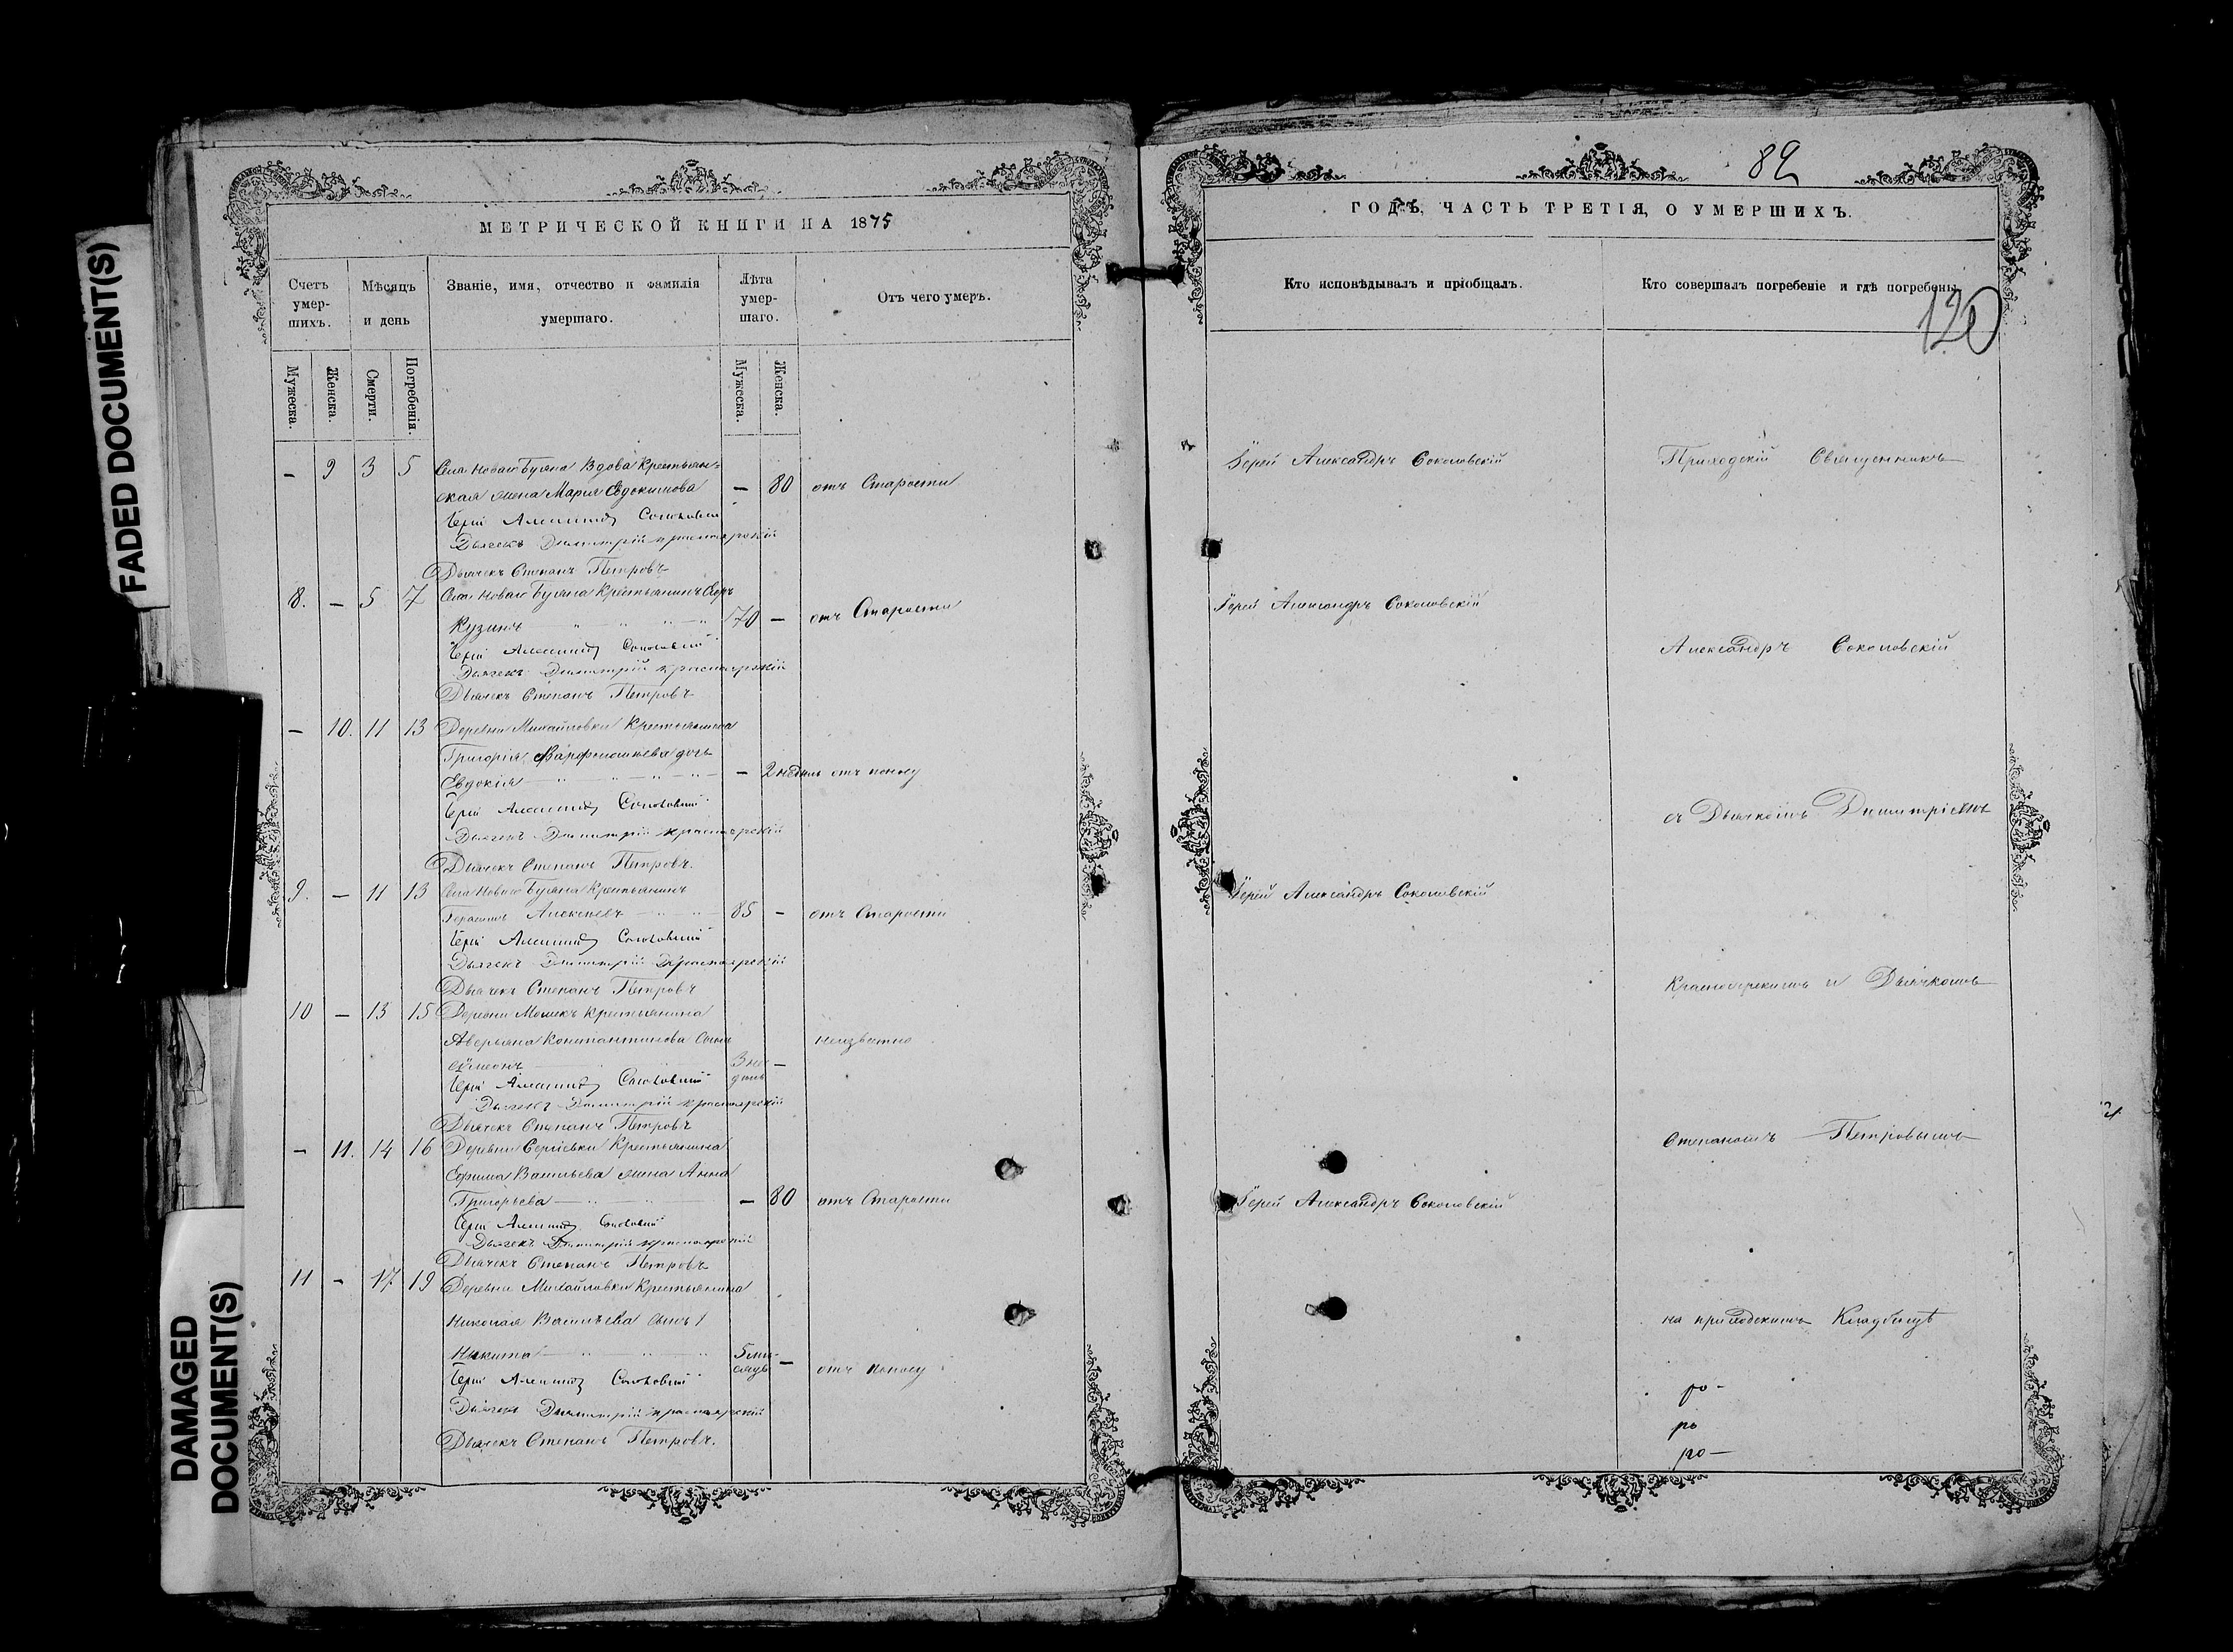 FADED DOCUMENT(S)
DAMAGED DOCUMENT(S)
МЕТРИЧЕСКОЙ КНИГИ НА 1875
Счетъ умершихъ.
Мѣсяцъ и день
Званіе, имя, отчество и фамилія умершаго.
Лѣта умершаго.
Отъ чего умеръ.
Мужеска.
Женска.
Смерти.
Погребенія.
Мужеска.
Женска.
— 9 3 5 Села Новаго Буяна Вдова Крестьян=
ская жена Марія Евдокимова — 80 отъ Старости
Іерей Александръ Соколовскій
Дьячекъ Димитрій Красноярскій
Дьячекъ Степанъ Петровъ
8. — 5 7 Села Новаго Буяна Крестьянинъ
Кузинъ 70 — отъ Старости
Іерей Александръ Соколовскій
Дьячекъ Димитрій Красноярскій
Дьячекъ Степанъ Петровъ
— 10. 11 13 Деревни Михайловки Крестьянина
Григорія дочь
Евдокія — 2 недѣль отъ поносу
Іерей Александръ Соколовскій
Дьячекъ Димитрій Красноярскій
Дьячекъ Степанъ Петровъ.
9. — 11 13 Села Новаго Буяна Крестьянинъ
Герасимъ Алексѣевъ 85 — отъ Старости
Іерей Александръ Соколовскій
Дьячекъ Димитрій Красноярскій
Дьячекъ Степанъ Петровъ
10 — 13 15 Деревни Крестьянина
Аверьяна Константинова Сынъ неизвѣстно
Симеонъ 3 недѣль —
Іерей Александръ Соколовскій
Дьячекъ Димитрій Красноярскій
Дьячекъ Степанъ Петровъ
— 11. 14 16 Деревни Сергіевки Крестьянина
Ефима Васильева жена Анна
Григорьева — 80 отъ Старости
Іерей Александръ Соколовскій
Дьячекъ Димитрій Красноярскій
Дьячекъ Степанъ Петровъ
11 — 17 19 Деревни Михайловки Крестьянина
Николая Васильева сынъ
Никита 5 мѣсяцъ — отъ поносу
Іерей Александръ Соколовскій
Дьячекъ Димитрій Красноярскій
Дьячекъ Степанъ Петровъ.
82
ГОДЪ, ЧАСТЬ ТРЕТІЯ, О УМЕРШИХЪ.
Кто исповѣдывалъ и пріобщалъ.
Кто совершалъ погребеніе и гдѣ погребены.
120
Іерей Александръ Соколовскій
Приходскій Священникъ
Іерей Александръ Соколовскій
Александръ Соколовскій
съ Дьячкомъ Димитріемъ
Іерей Александръ Соколовскій
Красноярскимъ и Дьячкомъ
Степаномъ Петровымъ
Іерей Александръ Соколовскій
на приходскомъ Кладбищѣ